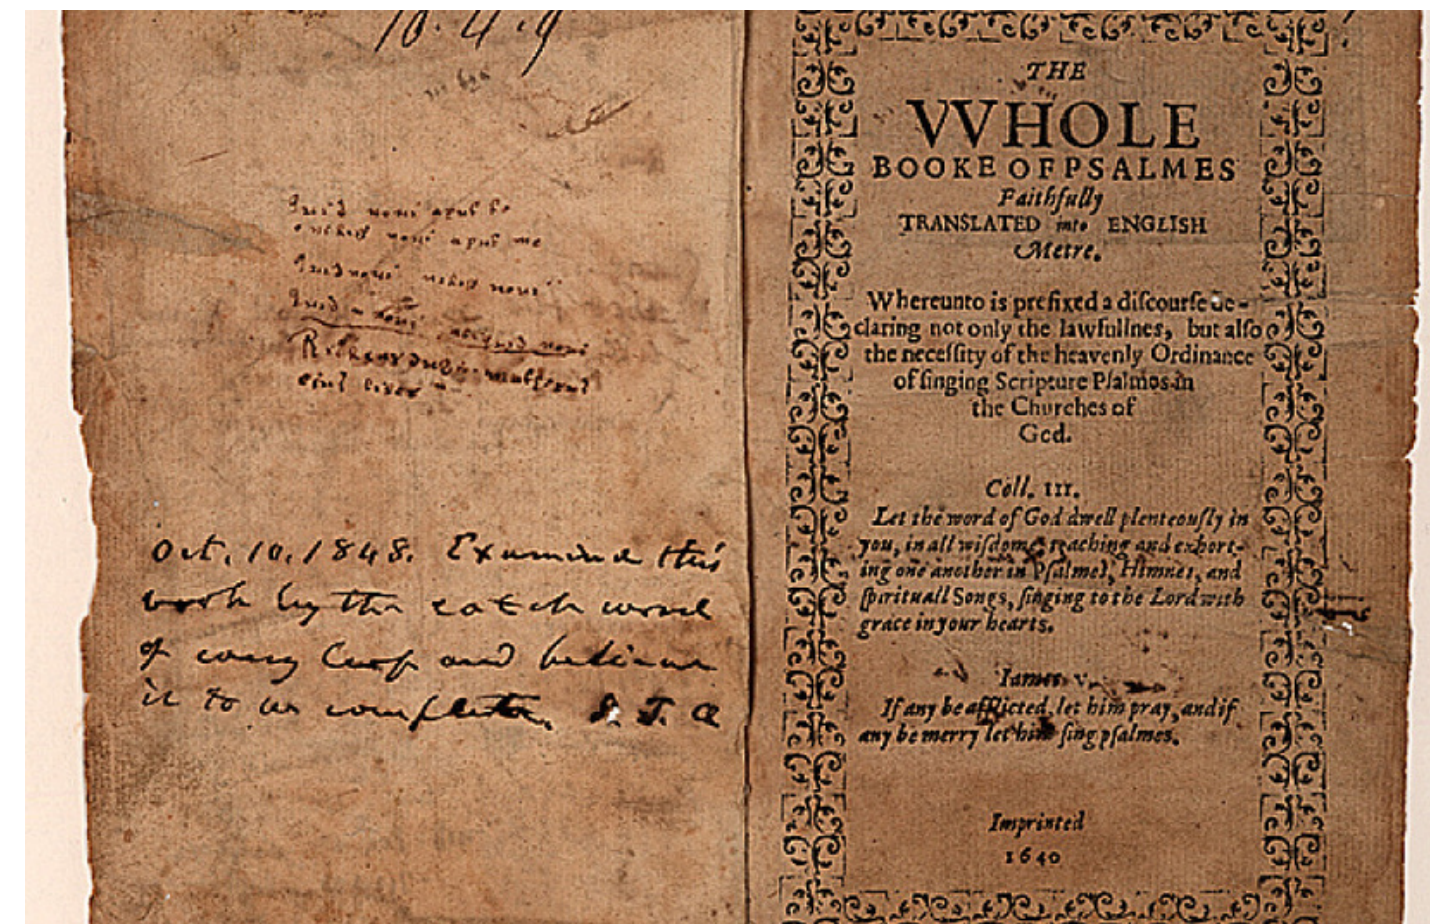 10.4.9
Oct. 10. 1848. Examined this
work by the catch word
of every leaf and believe
it to be complete. S. J. A
THE
VVHOLE
BOOKE OF PSALMES
Faithfully
TRANSLATED into ENGLISH
Metre.
Whereunto is prefixed a difcourſe de-
claring not only the lawfullnes, but alſo
the neceſſity of the heavenly Ordinance
of ſinging Scripture Pſalmes in
the Churches of
God.
Coll. III.
Let the word of God dwell plenteouſly in
you, in all wiſdome, teaching and exhort-
ing one another in Pſalmes, Himnes, and
ſpirituall Songs, ſinging to the Lord with
grace in your hearts.
Iames v.
If any be afflicted, let him pray, and if
any be merry let him ſing pſalmes.
Imprinted
1640